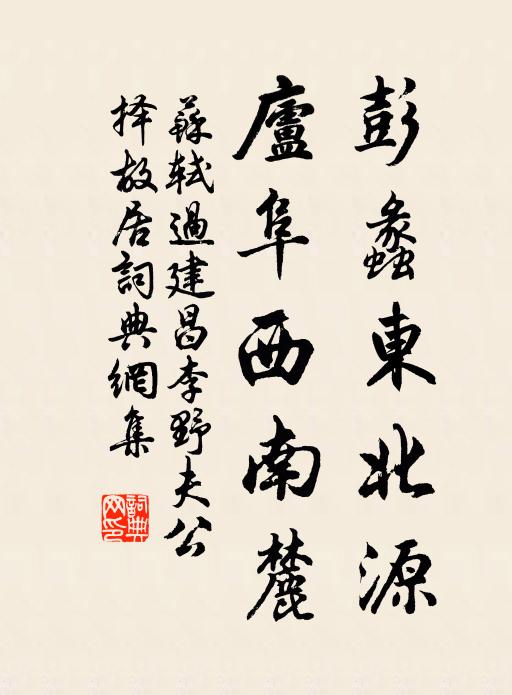 彭蠡東北源
廬阜西南麓
蘇軾過建昌李野夫公
择故居詞典網集
詞典
网印